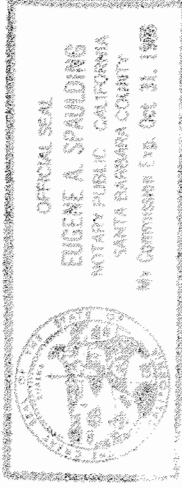 OFFICIAL SEAL
EUGENE A. SPAULDING
NOTARY PUBLIC CALIFORNIA
SANTA BARBARA COUNTY
My Commission Exp. Oct. 31, 1988